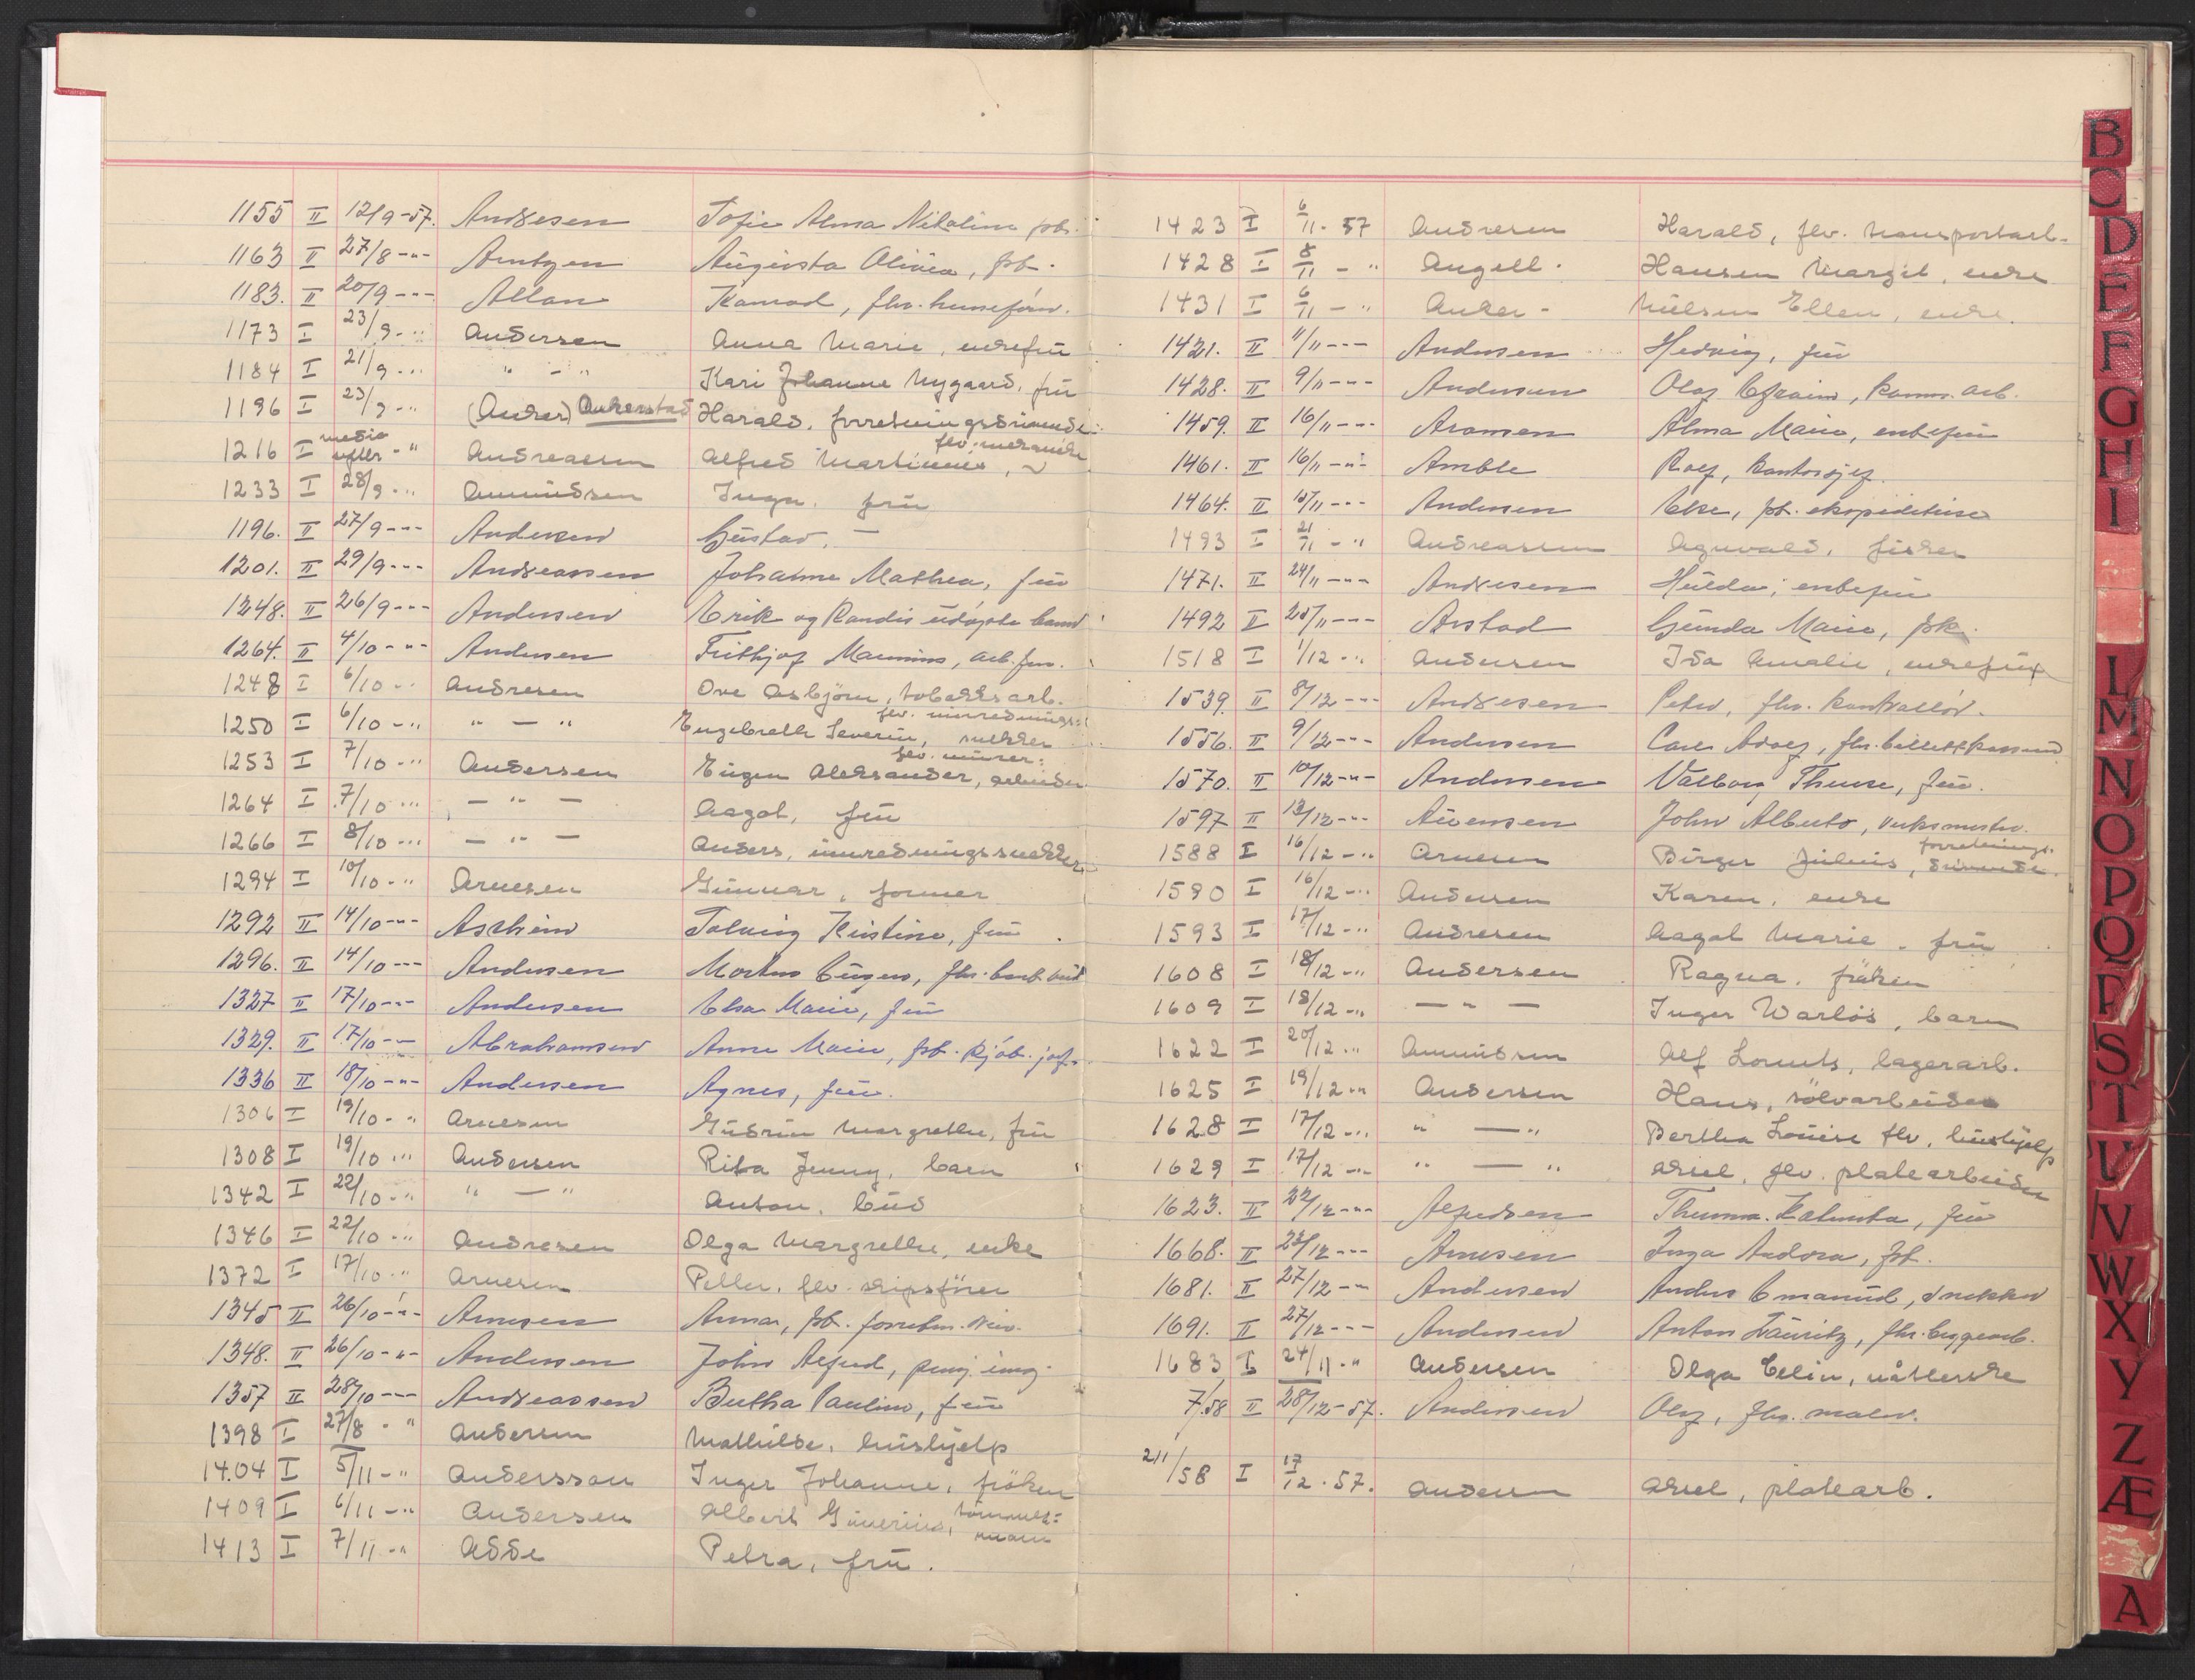 1155 II 12/9-57. Andresen Sofie Alma Nikoline psb.
1163 II 27/8 -"- Arntzen Augusta Olivia, psb.
1183. II 20/9 -"- Allan Konrad, fhv.
1173 I 23/9 -" Andersen Anna Marie, enkefrü
1184 I 21/9 -" " - " Kari Johanne Nygaard, frü
1196 I 23/9 -" (Anker) Ankerstad Harald, forretningsdrivende
1216 I medio -" Andreassen Alfred Martinius, flv. mekaniker
1233 I 28/9 -" Amundsen Inga, frü
1196. II 27/9 -"- Andersen Güstav, —
1201. II 29/9 -"- Andreassen Johanne Mathea, frü
1248. II 26/9 -"- Andersen Erik og Randis üdøpte barn
1264. II 4/10 -"- Andersen Frithjof Magnus, arb.
1248 I 6/10 -" Andresen Ove Asbjörn, tobakksarb.
1250 I 6/10 -" " — " Engebreth Severin, flv. innrednings= snekker
1253 I 7/10 -" Andersen Eügen Aleksander, flv. mürer= arbeider
1264 I 7/10 -" — " — Aagot, frü
1266 I 8/10 -" — " — Anders, innredningssnekker
1294 I 10/10 -" Arnesen Günnar, former
1292 II 14/10 -"- Ascheim Solveig Kristine, frü
1296. II 14/10 -"- Andersen Morten Eügen, fhv.
1327 II 17/10 -"- Andersen Elsa Marie, frü
1329. II 17/10 -"- Abrahamsen Anne Marie, psb.
1336 II 18/10 -"- Andersen Agnes, frü.
1306 I 19/10 -" Arnesen Güdrün Margrethe, frü
1308 I 19/10 -" Andersen Rita Jenny, barn
1342 I 22/10 -" " — " Anton, büd
1346 I 22/10 -" Andresen Olga Margrethe, enke
1372 I 17/10 -" Arnesen Petter, flv. skipsförer
1345 II 26/10 -"- Arnesen Anna, psb.
1348. II 26/10 -"- Andersen John Alfred, pens. ing.
1357 II 28/10 -"- Andreassen Bertha Pauline, frü
1398 I 27/8 -" Andersen Mathilde, hüshjelp
1404 I 5/11 -" Andersson Inger Johanne, fröken
1409 I 6/11 -" Andersen Albert Günerius, tömmer= mann
1413 I 7/11 -" Adde Petra, frü.
1423 I 6/11-57 Andresen Harald, flv. transportarb.
1428 I 8/11 -" Angell Hansen Margit, enke
1431 I 6/11 -" Anker - Nielsen Ellen, enke.
1421. II 11/11 -"- Andersen Hedvig, frü
1428. II 9/11 -"- Andersen Olaf Efraim, komm. arb.
1459. II 16/11 -"- Aronsen Alma Marie, enkefrü
1461. II 16/11 -"- Amble Rolf, kontorsjef.
1464. II 15/11 -"- Andersen Else, psb. ekspeditrise
1493 I 21/11 -" Andreassen Agnvald, fisker
1471. II 24/11 -"- Andresen Hülda, enkefrü
1492 II 25/11 -"- Arstad Günda Marie, psk.
1518 I 1/12 -" Andersen Ida Amalie, enkefrü
1539. II 8/12 -"- Andresen Peter, fhv. kontrollør.
1556. II 9/12 -"- Andersen Carl Adolf, fhv.
1570. II 10/12 -"- Andersen Valborg Therese, frü.
1597 II 13/12 -"- Aüensen John Alberto, verksmester.
1588 I 16/12 -" Arnesen Birger Jülius, forretnings= drivende.
1590 I 16/12 -" Andersen Karen, enke
1593 I 17/12 -" Andresen Aagot Marie, frü
1608 I 18/12 -" Andersen Ragna, fröken
1609 I 18/12 -" — " — Inger Warlös, barn
1622 I 20/12 -" Amündsen Alf Lorents, lagerarb.
1625 I 19/12 -" Andersen Hans, sölvarbeider
1628 I 17/12 -" " — " Bertha Louise flv. hüshjelp
1629 I 17/12 -" " — " Aksel, flv. platearbeider
1623. II 22/12 -"- Alfredsen Katinka, frü
1668. II 23/12 -"- Arnesen Inga Andora, psb.
1681. II 27/12 -"- Andersen Anders Emanüel, snekker
1691. II 27/12 -"- Andersen Anton Laüritz, fhv. byggearb.
1683 I 24/11 -" Andersen Olga Elin, nåtlerske
7/58 II 28/12-57. Andersen Olaf, fhv. maler.
211/58 I 17/12. 57. Andersen Aksel, platearb.
B
C
D
E
F
G
H
I
L
M
N
O
P
Q
R
S
T
U
V
W
X
Y
Z
Æ
A